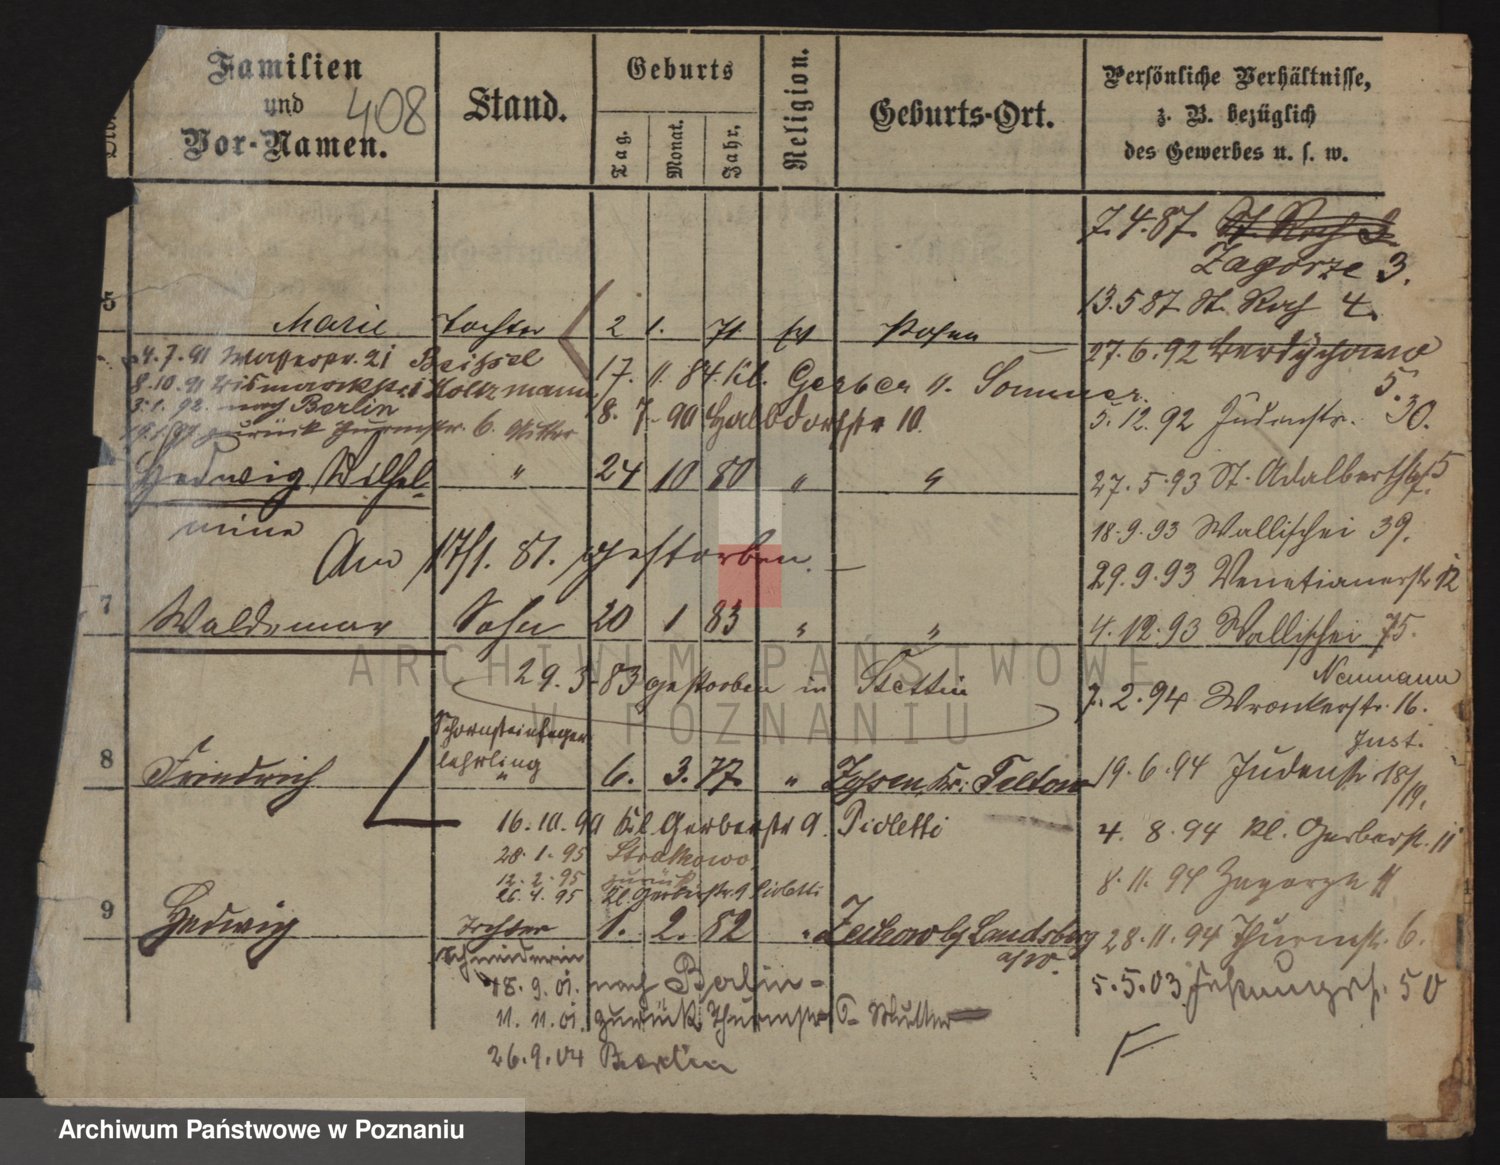 Familien
und
Vor-Namen.
408
Stand.
Geburts
Tag.
Monat.
Jahr.
Religion.
Geburts-Ort.
Persönliche Verhältnisse,
z. B. bezüglich
des Gewerbes u. s. w.
7.4.87. St. Roch 3
Zagorze 3.
13.5 87 St. Roch 4.
Marie Tochter 2 1. 71 Posen
27.6.92 Berdychowo
5.
4.7.91 Wasserstr. 21 Beissel
17. 11. 84. Kl. Gerber u. Sommer.
8.10.91 Bismarckstr. 1 Holtzmann
3.1.92. nach Berlin
8. 7. 90 Halbdorfstr 10.
zurück Thurmstr. 6. Mutter
5.12.92 Judenstr. 30.
Hedwig Wilhel- " 24 10 80 " "
mine
27.5.93 St. Adalbertstr. 5
18.9.93 Wallischei 39.
Am 17/1. 81. gestorben.
29.9.93 Venetianerstr 12
7 Waldemar Sohn 20 1 83 " "
4.12.93 Wallischei 75.
29.3.83 gestorben in Stettin
Neumann
7.2.94 Wronkerstr. 16.
Just.
8 Friedrich Schornsteinfeger
lehrling
"
6. 3. 77. " Zossen, Kr. Teltow
19.6.94 Judenstr. 18/19.
16.10.90 Kl. Gerberstr 9. Pioletti
4. 8.94 Kl. Gerberstr. 11
28.1.95 Strzalkowo
12.2.95 zurück
26.4.95 Kl. Gerberstr. 9 Pioletti
8.11.94 Zagorze 11
9 Hedwig Tochter 1. 2. 82 " Zechow by Landsberg
a/W.
28.11.94 Thurmstr. 6.
Schneiderin
18.9.01. nach Berlin
5.5.03 Festungsstr. 50
11.11.01. zurück Thurmstr 6 Mutter
26.9.04 Berlin
ARCHIWUM PAŃSTWOWE
W POZNANIU
Archiwum Państwowe w Poznaniu